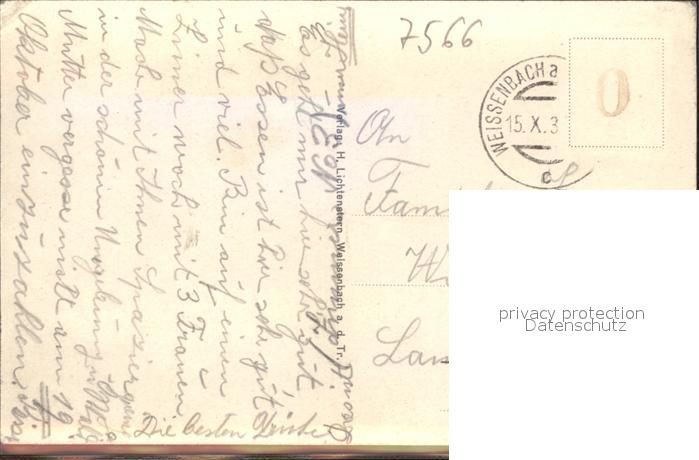 7566
WEISSENBACH a
15. X. 3
c
0
An
Fam
Wi
Lan
Verlag: H. Lichtenstern, Weissenbach a. d. Tr.
Es geht mir hier sehr gut
das Essen ist hier sehr gut
und viel. Bin auf einen
Zimer noch mit 3 Frauen,
Mache mit Ihnen Spazier
in der schönen Umgebung
Mutter vergesse nicht am 19
Oktober einzuzahlen.
Die besten Grüße
privacy protection
Datenschutz